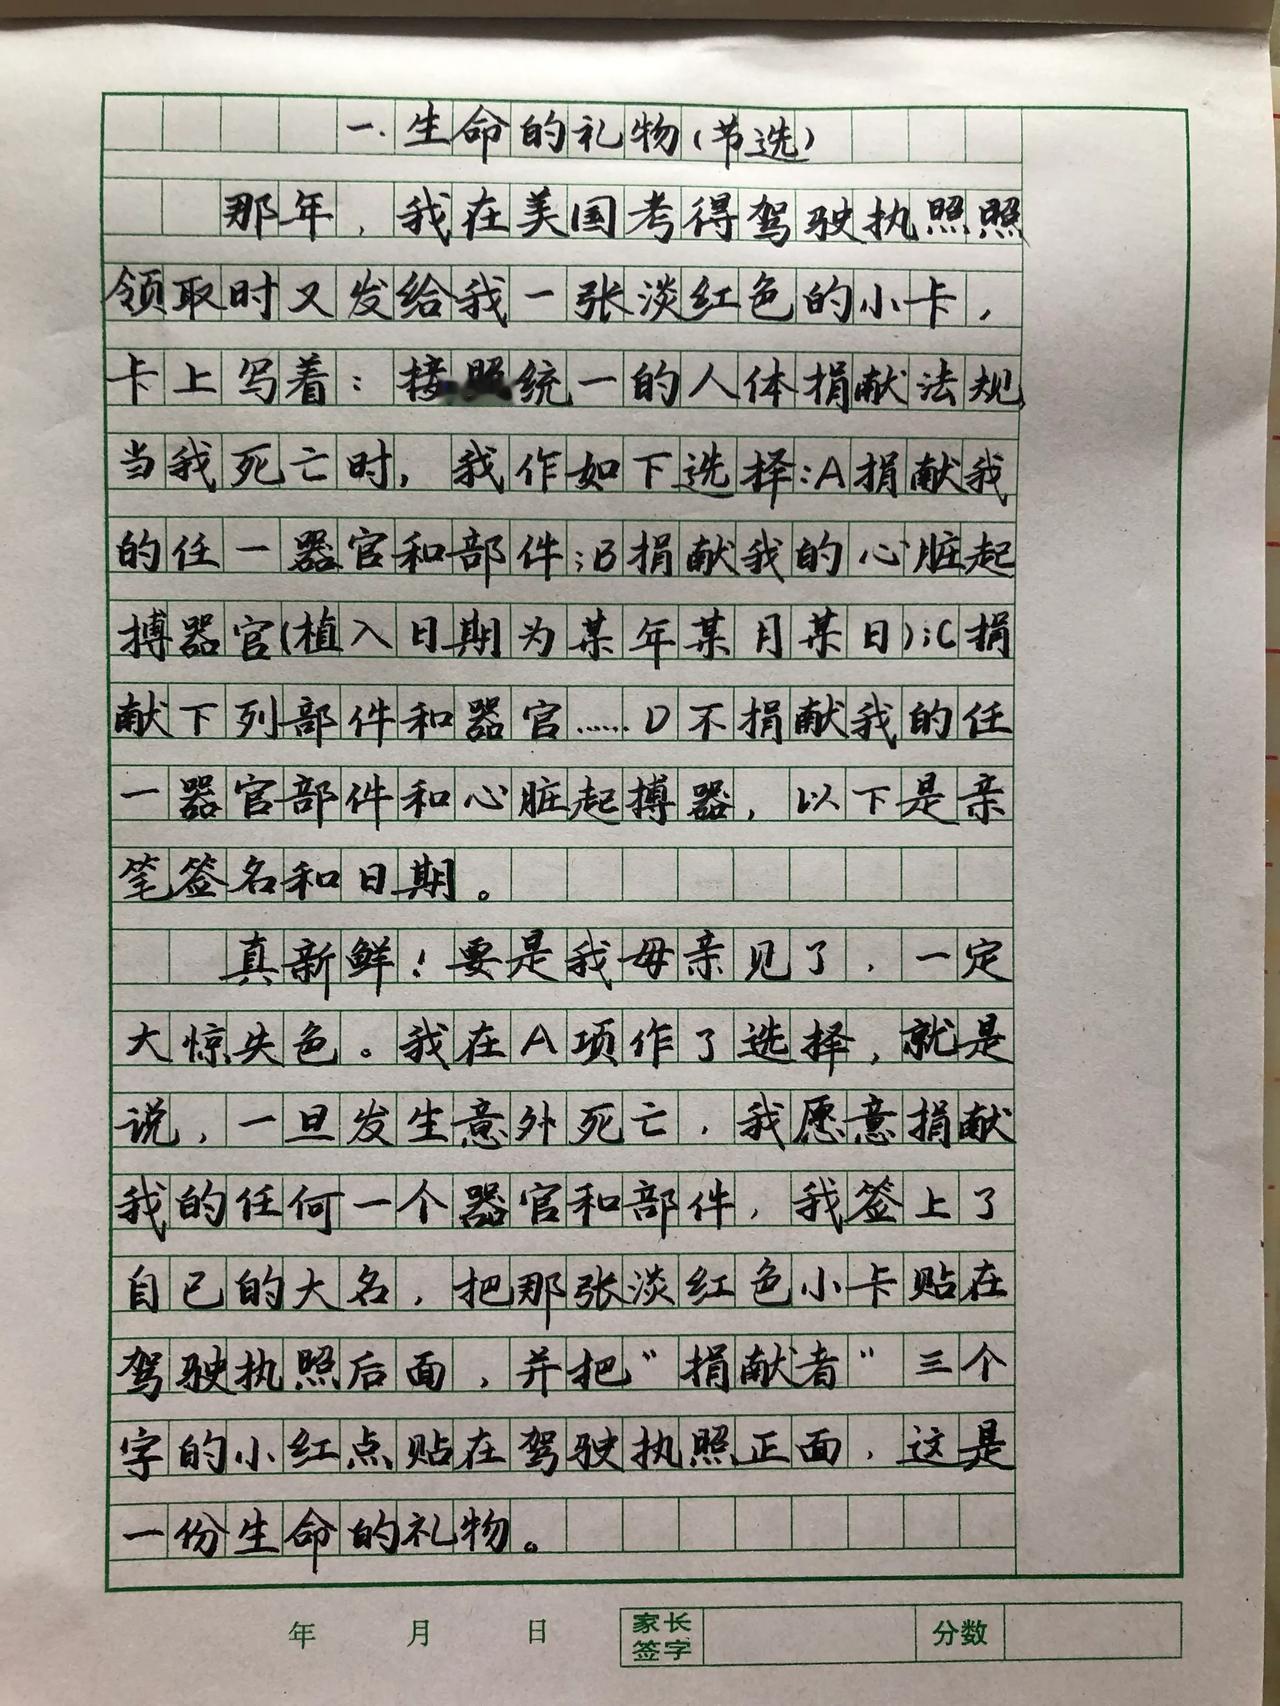 一.生命的礼物(节选)
那年,我在美国考得驾驶执照照
领取时又发给我一张淡红色的小卡,
卡上写着:接照统一的人体捐献法规
当我死亡时,我作如下选择:A捐献我
的任一器官和部件;B捐献我的心脏起
搏器官(植入日期为某年某月某日);C捐
献下列部件和器官……D不捐献我的任
一器官部件和心脏起搏器,以下是亲
笔签名和日期。
真新鲜!要是我母亲见了,一定
大惊失色。我在A项作了选择,就是
说,一旦发生意外死亡,我愿意捐献
我的任何一个器官和部件,我签上了
自己的大名,把那张淡红色小卡贴在
驾驶执照后面,并把“捐献者”三个
字的小红点贴在驾驶执照正面,这是
一份生命的礼物。
年 月 日 家长签字 分数